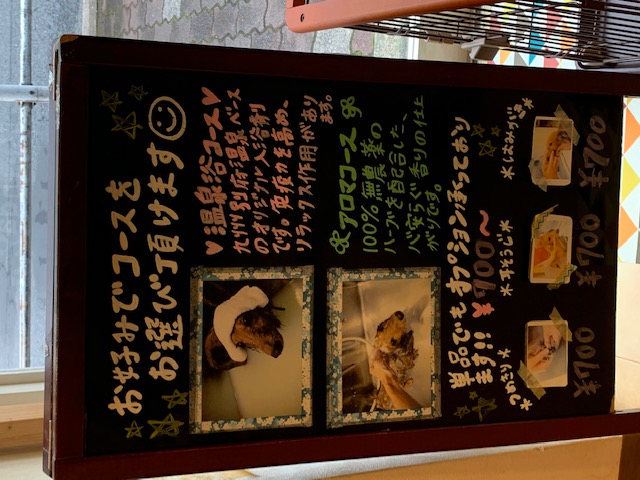 お好みでコースを
お選び頂けます
♥温泉浴コース♥
九州別府温泉ベース
のオリジナル入浴剤
です。免疫力を高め、
リラックス作用があり
ます。
アロマコース
100%無農薬の
ハーブを配合した、
心安らぐ香りの仕上
がりです。
単品でもオプション承っており
ます!! ¥700〜
*つめきり*
*耳そうじ*
*はみがき*
¥700
¥700
¥700